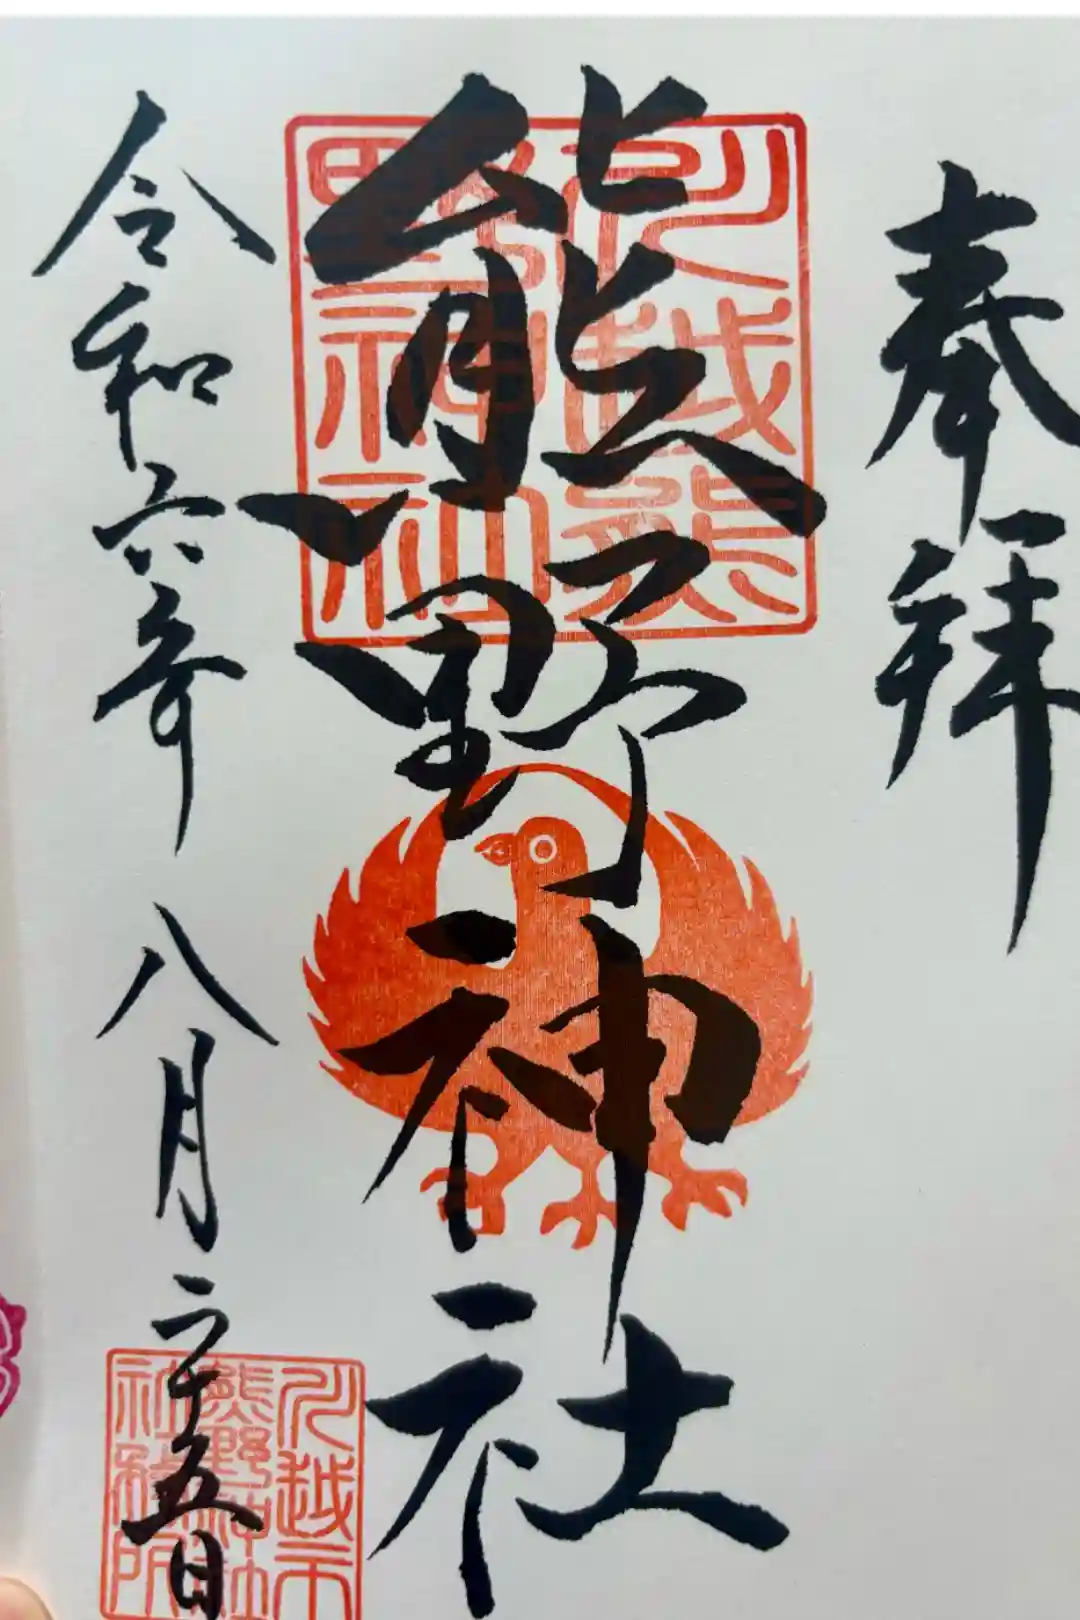 奉拝
熊野神社
川越熊野神社
令和六年八月二十五日
川越市熊野神社社務所